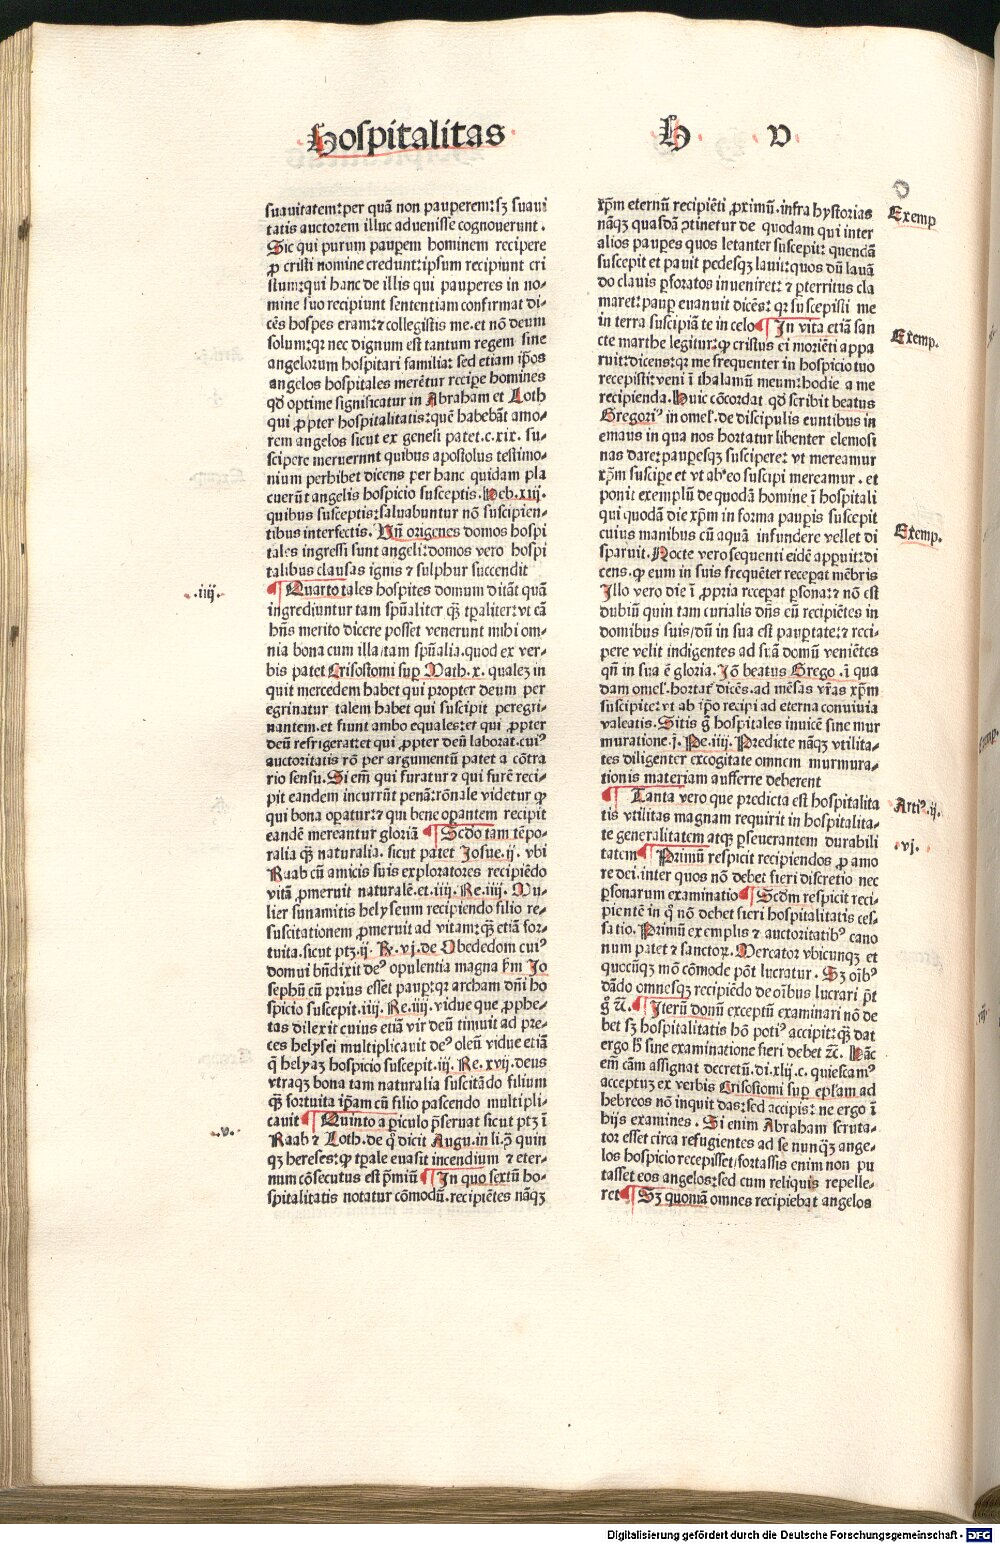 Hospitalitas
H v
suauitatem: per quã non pauperem: sꝫ suaui
tatis auctorem illuc aduenisse cognouerunt.
Sic qui purum pauꝑem hominem recipere
ꝓ cristi nomine credunt: ipsum recipiunt cri
stum: qui hanc de illis qui pauperes in no-
mine suo recipiunt sententiam confirmat di-
cẽs hospes eram: ⁊ collegistis me. et nõ deum
solum: qꝛ nec dignum est tantum regem sine
angelorum hospitari familia: sed etiam ip̃os
angelos hospitales merẽtur recipe homines
qd̃ optime significatur in Abraham et Loth
qui ꝓpter hospitalitatis: quẽ habebãt amo-
rem angelos sicut ex genesi patet. c. xix. su-
scipere meruerunt quibus apostolus testimo-
nium perhibet dicens per hanc quidam pla
cuerũt angelis hospicio susceptis. Heb. xiij.
quibus susceptis: saluabuntur nõ suscipien-
tibus interfectis. Vñ origenes domos hospi
tales ingressi sunt angeli: domos vero hospi
talibus clausas ignis ⁊ sulphur succendit
.iiij.
¶ Quarto tales hospites domum ditãt quã
ingrediuntur tam spũaliter qꝫ̃ tꝑaliter: vt eã
hñs merito dicere posset venerunt mihi om-
nia bona cum illa tam spũalia. quod ex ver-
bis patet Crisostomi suꝑ Math. x. qualez in
quit mercedem habet qui propter deum per
egrinatur talem habet qui suscipit peregri-
nantem. et fiunt ambo equales: et qui ꝓpter
deũ refrigerat: et qui ꝓpter deũ laborat. cuiꝰ
auctoritatis rõ per argumentũ patet a cõtra
rio sensu. Si em̃ qui furatur ⁊ qui furẽ reci-
pit eandem incurrũt penã: rõnale videtur ꝙ
qui bona oꝑatur: ⁊ qui bene oꝑantem recipit
eandẽ mereantur gloriã ¶ Scd̃o tam tẽpo-
ralia qꝫ̃ naturalia. sicut patet Josue. ij. vbi
Raab cũ amicis suis exploratores recipiẽdo
vitã ꝓmeruit naturalẽ. et. iiij. Re. iiij. Mu-
lier sunamitis helyseum recipiendo filio re-
suscitationem ꝓmeruit ad vitam: qꝫ̃ etiã for-
tuita. sicut ptꝫ. ij. Re. vj. de Obededom cuiꝰ
domui bñdixit deꝰ opulentia magna s̃m Jo
sephũ cũ prius esset pauꝑ: qꝛ archam dñi ho
spicio suscepit. iiij. Re. iiij. vidue que ꝓphe-
tas dilexit cuius etiã vir deũ timuit ad pre-
ces helysei multiplicauit deꝰ oleũ vidue etiã
q̃ helyaꝫ hospicio suscepit. iij. Re. xvij. deus
vtraqꝫ bona tam naturalia suscitãdo filium
qꝫ̃ fortuita ip̃am cũ filio pascendo multipli-
.v.
cauit ¶ Quinto a ꝑiculo p̃seruat sicut ptꝫ ĩ
Raab ⁊ Loth. de q̃ dicit Augu. in li. ꝯ̃ quin
qꝫ hereses: ꝙ tꝑale euasit incendium ⁊ eter-
num cõsecutus est p̃miũ ¶ In quo sextũ ho-
spitalitatis notatur cõmodũ. recipiẽtes nãqꝫ
xp̃m eternũ recipiẽti ꝓximũ. infra hystorias
Exemp
nãqꝫ quasdã ꝯtinetur de quodam qui inter
alios pauꝑes quos letanter suscepit: quendã
suscepit et pauit pedesqꝫ lauit: quos dũ lauã
do clauis ꝑforatos inueniret: ⁊ ꝑterritus cla
maret: pauꝑ euanuit dicẽs: qꝛ suscepisti me
in terra suscipiã te in celo ¶ In vita etiã san
Exemp.
cte marthe legitur: ꝙ cristus ei moriẽti appa
ruit: dicens: qꝛ me frequenter in hospicio tuo
recepisti: veni ĩ thalamũ meum: hodie a me
recipienda. Huic cõcordat qd̃ scribit beatus
Gregoriꝰ in omel̃. de discipulis euntibus in
emaus in qua nos hortatur libenter elemosi
nas dare: pauꝑesqꝫ suscipere: vt mereamur
xp̃m suscipe et vt ab eo suscipi mereamur. et
ponit exemplũ de quodã homine ĩ hospitali
qui quodã die xp̃m in forma pauꝑis suscepit
Exemp.
cuius manibus cũ aquã infundere vellet di
sparuit. Nocte vero sequenti eidẽ apꝑuit: di
cens. ꝙ eum in suis frequẽter receꝑat mẽbris
Illo vero die ĩ ꝓpria receꝑat ꝑsona: ⁊ nõ est
dubiũ quin tam curialis dñs cũ recipiẽtes in
domibus suis / dũ in sua est pauꝑtate: ⁊ reci-
pere velit indigentes ad suã domũ veniẽtes
qñ in sua ẽ gloria. Jõ beatus Grego. ĩ qua
dam omel̃. hortat᷑ dicẽs. ad mẽsas vr̃as xp̃m
suscipite: vt ab ip̃o recipi ad eterna conuiuia
valeatis. Sitis g̃ hospitales inuicẽ sine mur
muratione. j. Pe. iiij. Predicte nãqꝫ vtilita-
tes diligenter excogitate omnem murmura-
tionis materiam aufferre deberent
Artiꝰ. ij.
¶ Tanta vero que predicta est hospitalita
tis vtilitas magnam requirit in hospitalita-
te generalitatem atqꝫ ꝑseuerantem durabili
.vj.
tatem ¶ Primũ respicit recipiendos ꝓ amo
re dei. inter quos nõ debet fieri discretio nec
ꝑsonarum examinatio ¶ Scd̃m respicit reci-
pientẽ in q̃ nõ debet fieri hospitalitatis ces-
satio. Primũ exemplis ⁊ auctoritatibꝰ cano
num patet ⁊ sanctoꝝ. Mercator vbicunqꝫ et
quocũqꝫ mõ cõmode põt lucratur. Sꝫ oĩbꝰ
dãdo omnesqꝫ recipiẽdo de oĩbus lucrari p̃t
g̃ ⁊c̃. ¶ Iterũ donũ exceptũ examinari nõ de
bet sꝫ hospitalitatis hõ potiꝰ accipit: qꝫ̃ dat
ergo h̃ sine examinatione fieri debet ⁊c̃. Hãc
em̃ cãm assignat decretũ. di. xlij. c. quiescamꝰ
acceptuꝫ ex verbis Crisostomi suꝑ ep̃lam ad
hebreos nõ inquit das: sed accipis: ne ergo ĩ
hijs examines. Si enim Abraham scruta-
tor esset circa refugientes ad se nunqꝫ̃ ange-
los hospicio recepisset / fortassis enim non pu
tasset eos angelos: sed cum reliquis repelle-
ret ¶ Sꝫ quoniã omnes recipiebat angelos
Digitalisierung gefördert durch die Deutsche Forschungsgemeinschaft - DFG